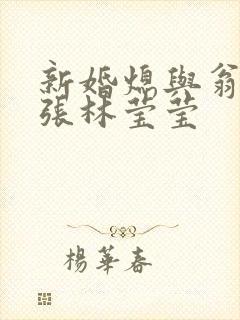 新婚媳與翁
張林莹莹
楊華春